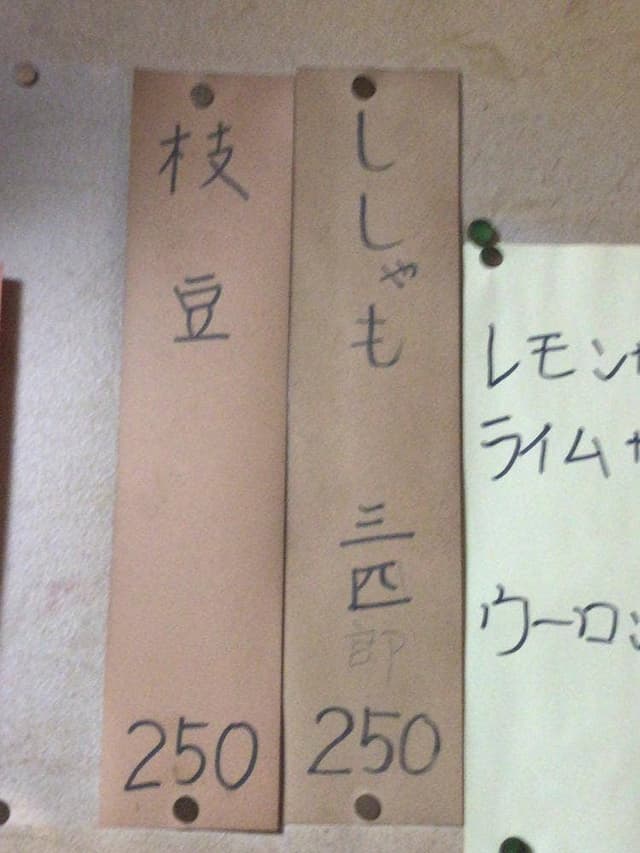 枝豆
250
ししゃも 三匹
250
レモン
ライム
ウーロン